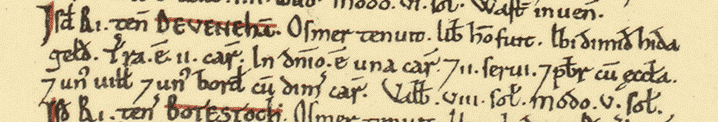 modo. vi. sol. Wast inuen.
Isd Ri. ten̄ DEVENEHĀ. Osmer tenuit. lib̄ hō fuit. Ibi dimid̄ hida
geld̄. Tra. ē. ii. car̄. In dn̄io. ē una car̄. ⁊ ii. serui. ⁊ pb̄r cū æccła.
⁊ un' uilł ⁊ un' bord̄ cū dim̄ car̄. Valb̄. viii. soł. Modo. v. soł.
Isd Ri. ten̄ BOTESTOCH. Osmer